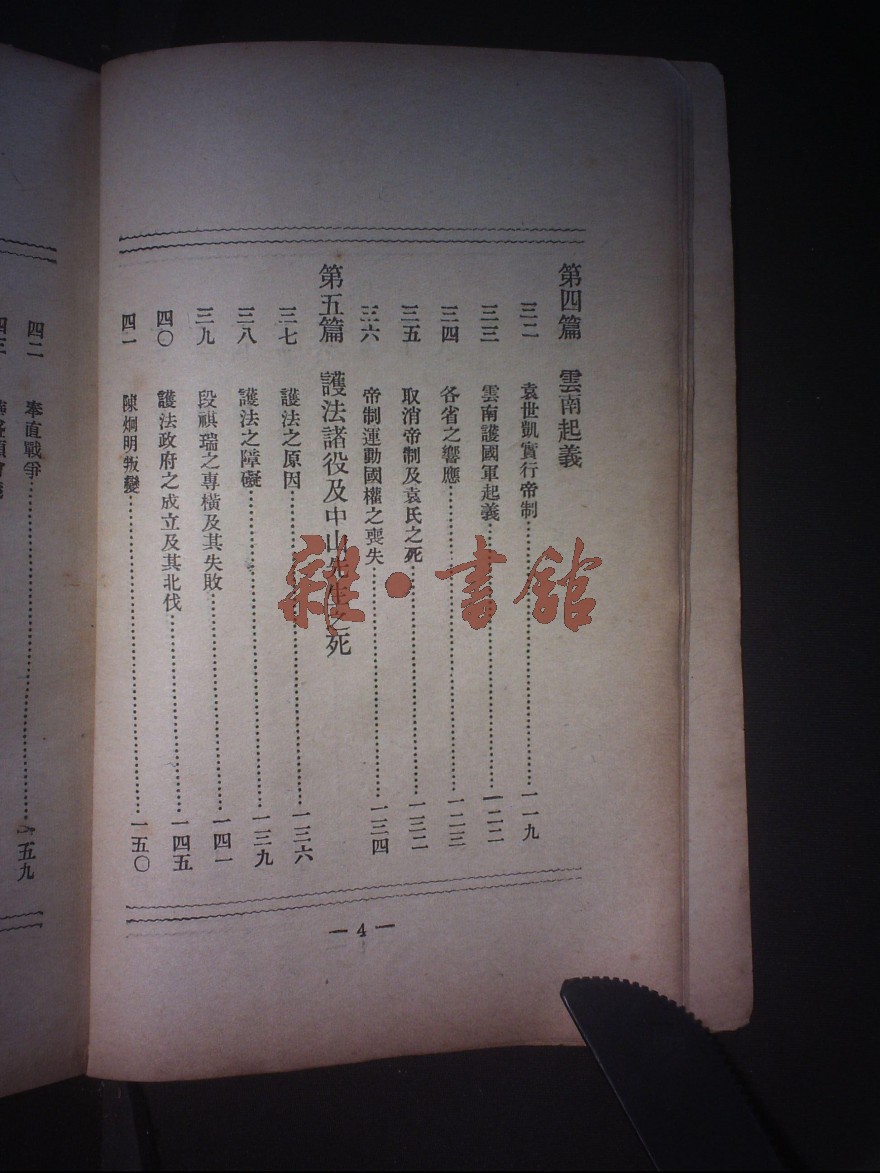 第四篇　雲南起義
三二　袁世凱實行帝制……一一九
三三　雲南護國軍起義……一二二
三四　各省之響應……一二三
三五　取消帝制及袁氏之死……一三二
三六　帝制運動國權之喪失……一三四
第五篇　護法諸役及中山先生之死
三七　護法之原因……一三六
三八　護法之障礙……一三九
三九　段祺瑞之專橫及其失敗……一四一
四〇　護法政府之成立及其北伐……一四五
四一　陳炯明叛變……一五〇
— 4 —
四二　奉直戰爭……一五九
雜·書館